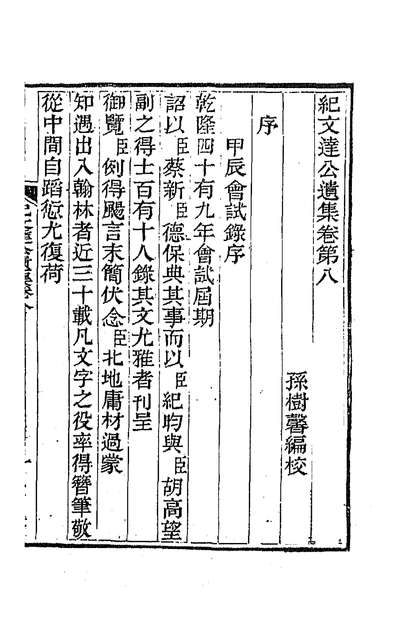 紀文達公遺集卷第八
孫樹馨編校
序
甲辰會試錄序
乾隆四十有九年會試屆期
詔以臣蔡新臣德保典其事而以臣紀昀與臣胡高望
副之得士百有十人錄其文尤雅者刊呈
御覽臣例得颺言末簡伏念臣北地庸材過蒙
知遇出入翰林者近三十載凡文字之役率得簪筆敬
從中間自蹈愆尤復荷